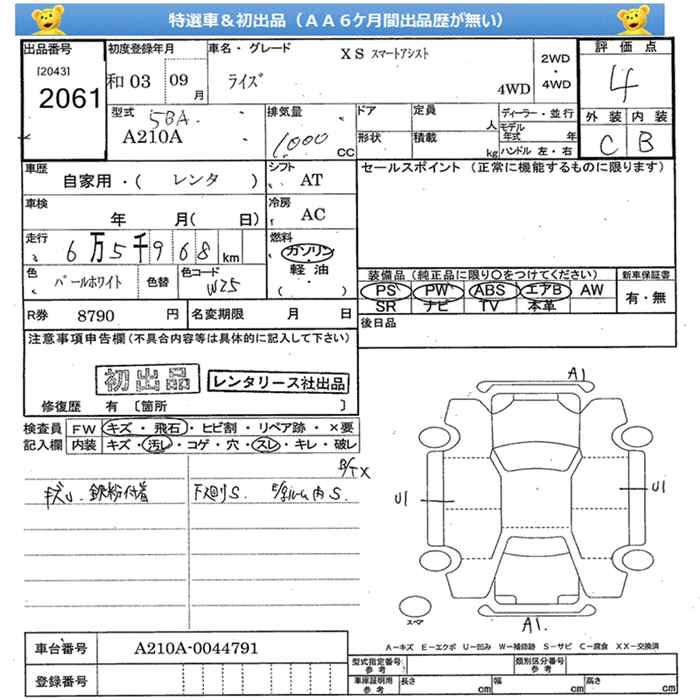 特選車＆初出品（ＡＡ６ケ月間出品歴が無い）
出品番号 初度登録年月 車名・グレード XS スマートアシスト 2WD・4WD 評価点
[2043] 2061 和 03 09月 ライズ 4WD 4
型式 5BA A210A 排気量 1000 CC ドア 定員 人 ディーラー・並行 外装 内装
形状 積載 kg モデル年式 年 ハンドル 左・右 C B
車歴 自家用・( レンタ ) シフト AT セールスポイント（正常に機能するものに限ります）
車検 年 月( 日) 冷房 AC
走行 6万5千968km 燃料 ガソリン・軽油・( )
色 パールホワイト 色替 色コード W25 装備品（純正品に限り〇をつけてください） 新車保証書
PS PW ABS エアB AW 有・無
R券 8790 円 名変期限 月 日 SR ナビ TV 本革
注意事項申告欄(不具合内容等は具体的に記入して下さい) 後日品
初出品 レンタリース社出品
修復歴 有 〔箇所 〕
検査員 FW キズ・飛石・ヒビ割・リペア跡・×要
記入欄 内装 キズ・汚レ・コゲ・穴・スレ・キレ・破レ
B/TX
キズU 鉄粉付着 下廻りS. E/gルーム内S.
A1
U1 U1
スペア A1.
車台番号 A210A-0044791
A－キズ E－エクボ U－凹み W－補修跡 S－サビ C－腐食 XX－交換済
登録番号 型式指定番号 参考 類別区分番号 参考
車庫証明用 参考 長さ cm 幅 cm 高さ cm